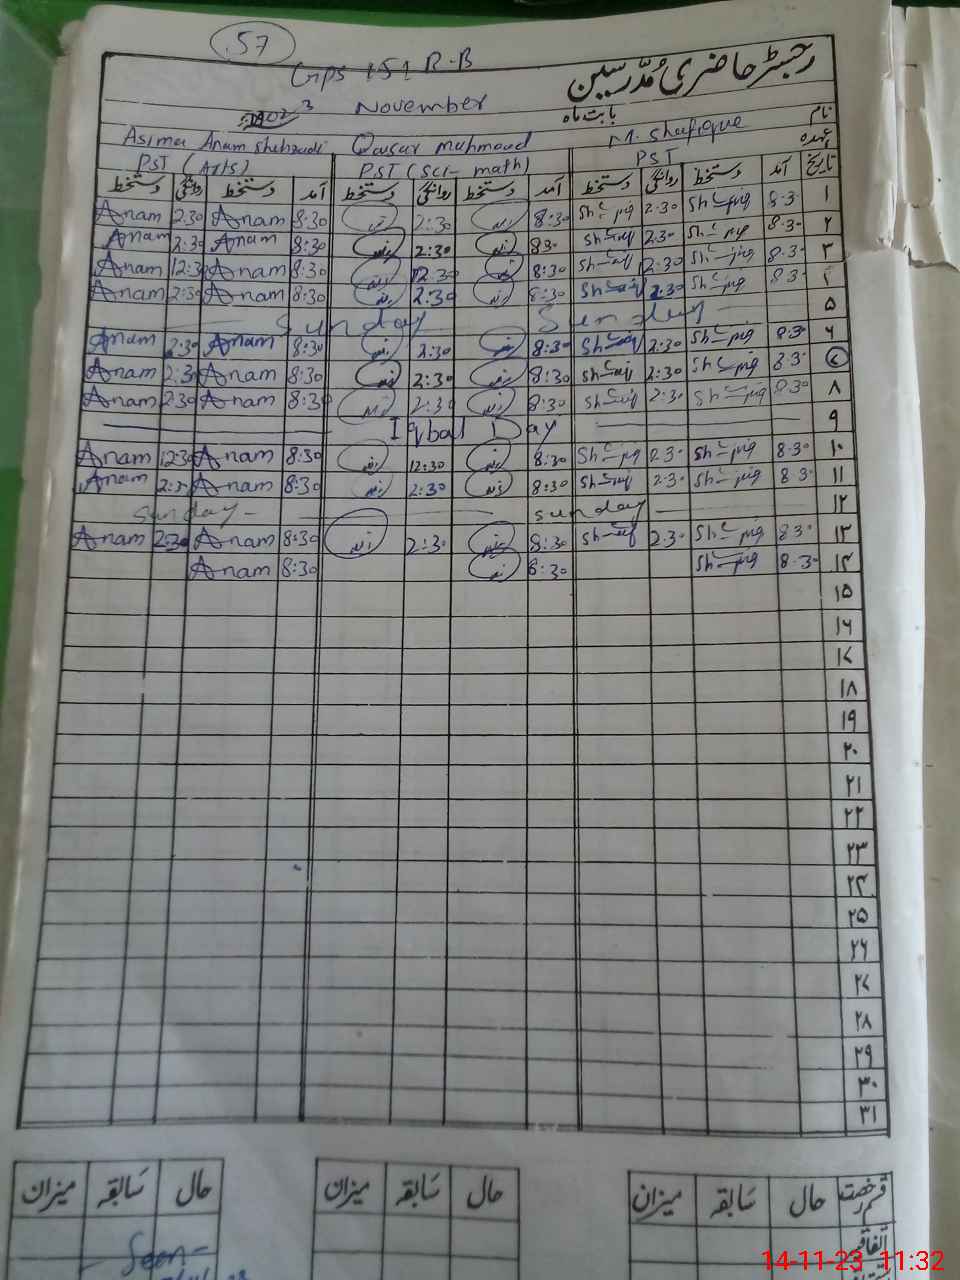 57
Gps 151 R-B
رجسٹر حاضری مُدرّسین
2023 November بابت ماہ
نام Asima Anam Shehzadi Qaisar Mahmood M. Shafique
عہدہ PST (Arts) PST (Sci- math) PST
دستخط روانگی دستخط آمد دستخط روانگی دستخط آمد دستخط روانگی دستخط آمد تاریخ
Anam 2:30 Anam 8:30 2:30 8:30 2:30 8:30 ۱
Anam 2:30 Anam 8:30 2:30 8:30 2:30 8:30 ۲
Anam 12:30 Anam 8:30 12:30 8:30 12:30 8:30 ۳
Anam 2:30 Anam 8:30 2:30 8:30 2:30 8:30 ۴
Sunday Sunday ۵
Anam 2:30 Anam 8:30 2:30 8:30 2:30 8:30 ۶
Anam 2:30 Anam 8:30 2:30 8:30 2:30 8:30 ۷
Anam 2:30 Anam 8:30 2:30 8:30 2:30 8:30 ۸
Iqbal Day ۹
Anam 12:30 Anam 8:30 12:30 8:30 2:30 8:30 ۱۰
Anam 2:30 Anam 8:30 2:30 8:30 2:30 8:30 ۱۱
Sunday Sunday ۱۲
Anam 2:30 Anam 8:30 2:30 8:30 2:30 8:30 ۱۳
Anam 8:30 8:30 8:30 ۱۴
۱۵
۱۶
۱۷
۱۸
۱۹
۲۰
۲۱
۲۲
۲۳
۲۴
۲۵
۲۶
۲۷
۲۸
۲۹
۳۰
۳۱
میزان سابقہ حال میزان سابقہ حال میزان سابقہ حال قسم رخصت
اتفاقیہ
Seen
14-11-23 11:32